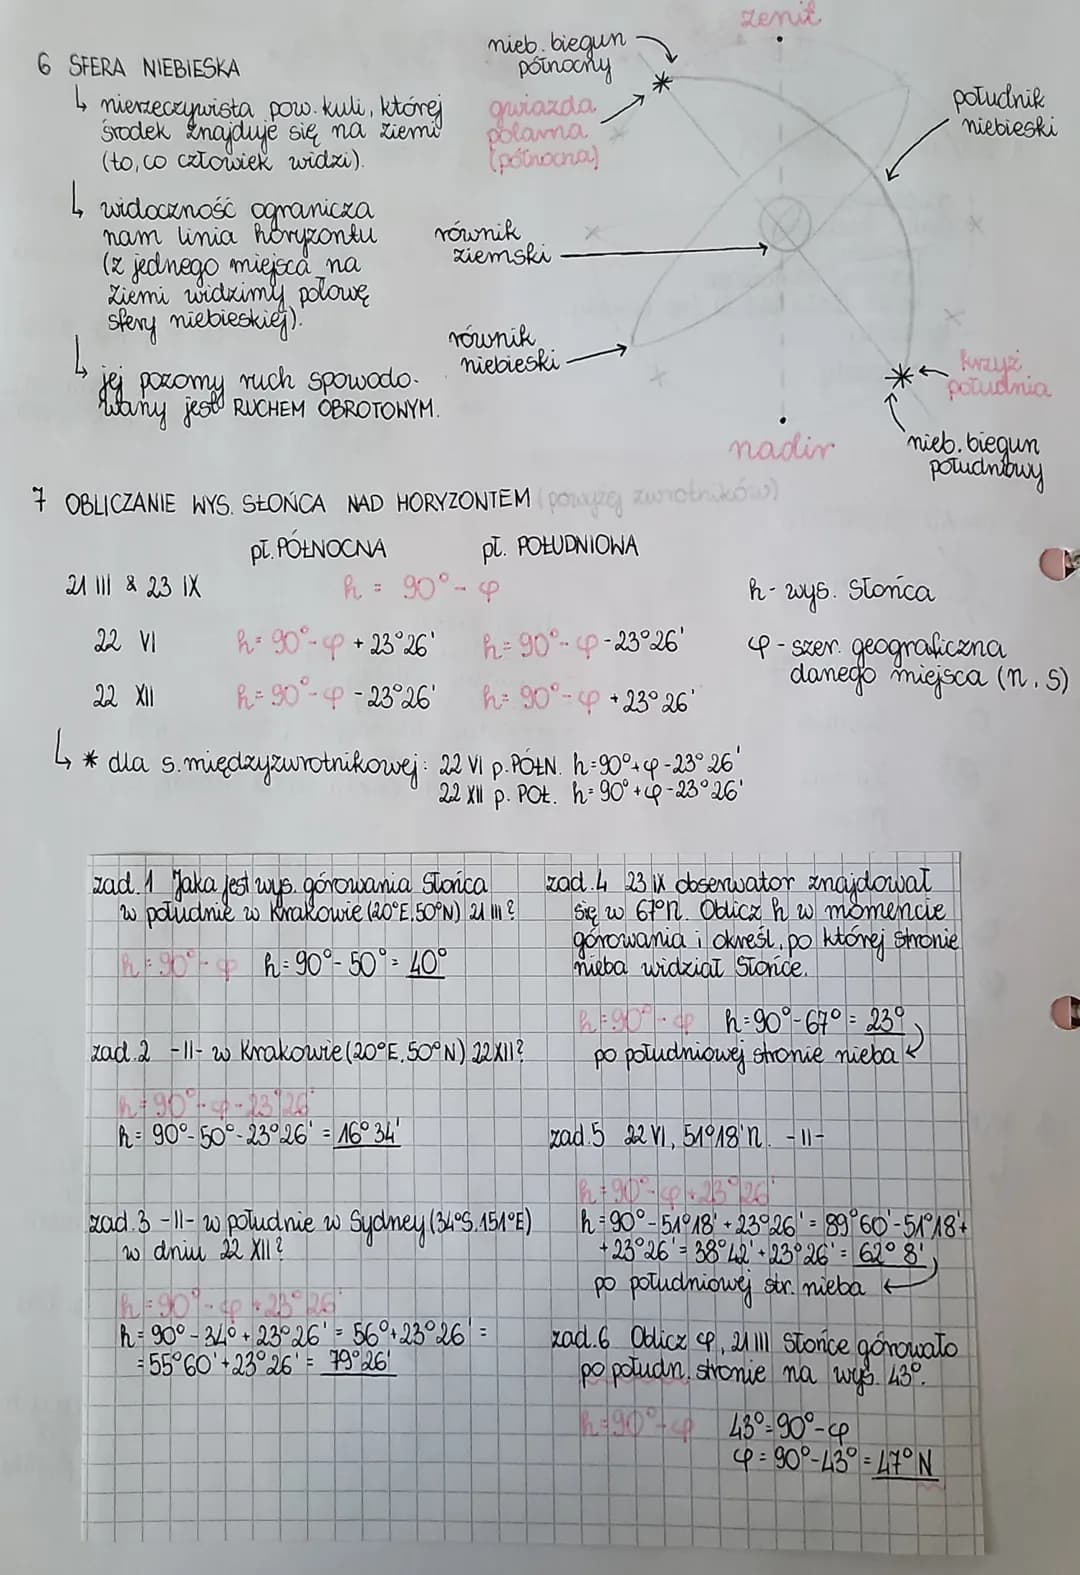 6 SFERA NIEBIESKA
↳ nierzeczywista pow. kuli, której
środek znajduje się na ziemi
(to, co człowiek widzi).
↳ widoczność ogranicza
nam linia horyzontu
(z jednego miejsca na
Ziemi widzimy połowę
sfery niebieskiej).
↳ jej pozorny ruch spowodo-
wany jest RUCHEM OBROTOWYM.
zenit
nieb. biegun
północny
gwiazda
polarna
(północna)
południk
niebieski
równik
ziemski
równik
niebieski
krzyż
południa
nadir
nieb. biegun
południowy
7 OBLICZANIE WYS. SŁOŃCA NAD HORYZONTEM (powyżej zwrotników)
pł. PÓŁNOCNA pł. POŁUDNIOWA
21 III & 23 IX h = 90° - φ
22 VI h = 90° - φ + 23°26' h = 90° - φ - 23°26'
22 XII h = 90° - φ - 23°26' h = 90° - φ + 23°26'
h - wys. Słońca
φ - szer. geograficzna
danego miejsca (n, s)
↳ * dla s. międzyzwrotnikowej: 22 VI p. PÓŁN. h = 90° + φ - 23°26'
22 XII p. POŁ. h = 90° + φ - 23°26'
zad. 1 Jaka jest wys. górowania Słońca
w południe w Krakowie (20°E, 50°N) 21 III?
h = 90° - φ h = 90° - 50° = 40°
zad. 2 -II- w Krakowie (20°E, 50°N) 22 XII?
h = 90° - φ - 23°26'
h = 90° - 50° - 23°26' = 16°34'
zad. 3 -II- w południe w Sydney (34°S, 151°E)
w dniu 22 XII?
h = 90° - φ + 23°26'
h = 90° - 34° + 23°26' = 56° + 23°26' =
= 55°60' + 23°26' = 79°26'
zad. 4 23 IX obserwator znajdował
się w 67°n. Oblicz h w momencie
górowania i określ, po której stronie
nieba widział Słońce.
h = 90° - φ h = 90° - 67° = 23°
po południowej stronie nieba
zad. 5 22 VI, 51°18'n. -II-
h = 90° - φ + 23°26'
h = 90° - 51°18' + 23°26' = 89°60' - 51°18' +
+ 23°26' = 38°42' + 23°26' = 62°8'
po południowej str. nieba
zad. 6 Oblicz φ, 21 III Słońce górowało
po połudn. stronie na wys. 43°.
h = 90° - φ 43° = 90° - φ
φ = 90° - 43° = 47°N